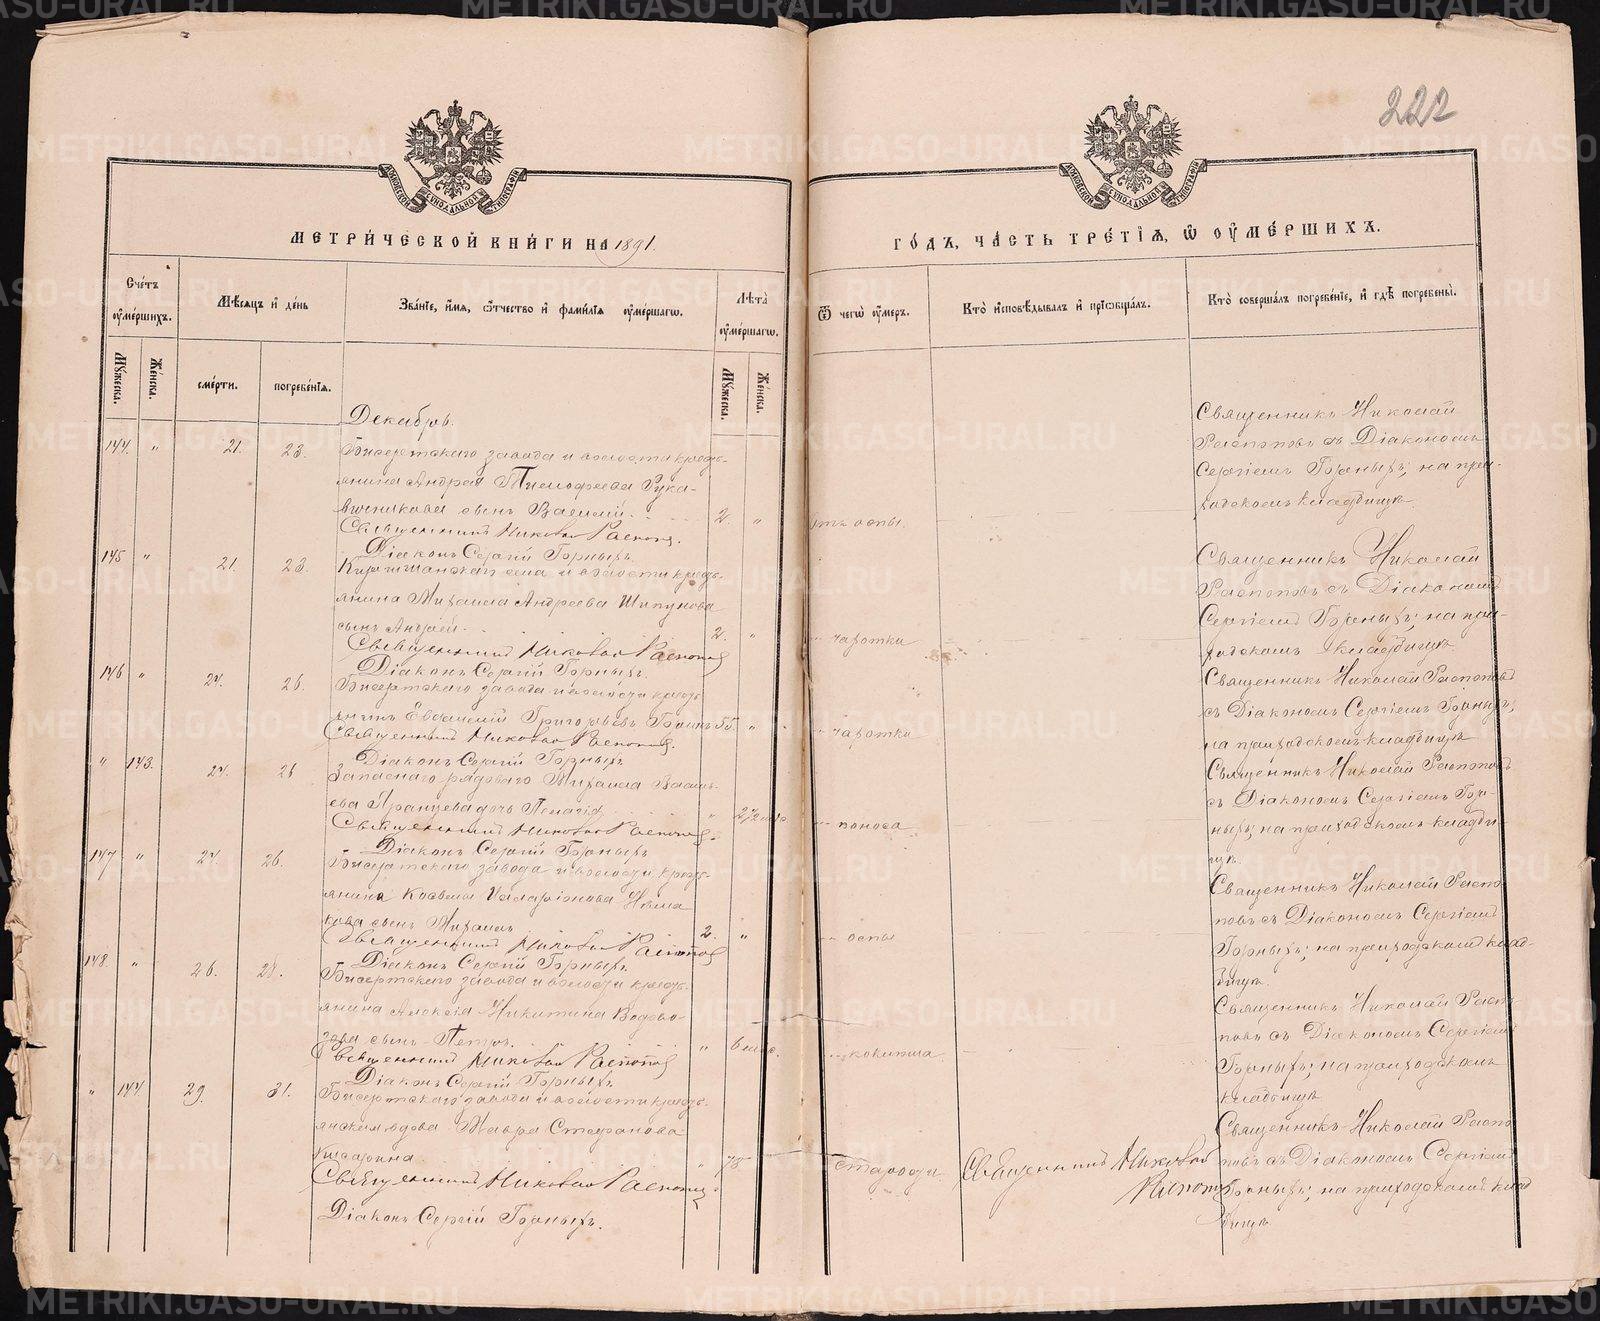 222
МОСКОВСКОЙ СѴНОДАЛЬНОЙ ТИПОГРАФІИ
МОСКОВСКОЙ СѴНОДАЛЬНОЙ ТИПОГРАФІИ
МЕТРИ́ЧЕСКОЙ КНИ́ГИ НА 1891.
ГО́ДЪ, ЧА́СТЬ ТРЕ́ТІѦ, Ѽ ОУ҆МЕ́РШИХЪ.
Сче́тъ оу҆ме́ршихъ.
Мѣ́сѧцъ и҆ де́нь
Зва́нїе, и҆́мѧ, ѻ҆́тчество и҆ фами́лїѧ оу҆ме́ршагѡ.
Лѣ́та оу҆ме́ршагѡ.
Ѿ чегѡ̀ оу҆́меръ.
Кто̀ и҆сповѣ́дывалъ и҆ прїѡбща́лъ.
Кто̀ соверша́лъ погребе́нїе, и҆ гдѣ̀ погребены̀.
Мꙋ́жеска.
Же́нска.
сме́рти.
погребе́нїѧ.
Мꙋ́жеска.
Же́нска.
Декабрь.
144. " 21. 23. Бисертскаго завода и волости кресть-
янина Андрея Тимофеева Рука-
вишникова сынъ Василій. 2. " отъ оспы.
Священникъ Николай Распоповъ.
Діаконъ Сергій Горныхъ.
Священникъ Николай
Распоповъ съ Діакономъ
Сергіемъ Горныхъ; на при-
ходскомъ кладбищѣ
145 " 21. 23. Киргишанскаго села и волости кресть-
янина Михаила Андреева Шипунова
сынъ Андрей. 2. " " чахотки
Священникъ Николай Распоповъ
Діаконъ Сергій Горныхъ.
Священникъ Николай
Распоповъ съ Діакономъ
Сергіемъ Горныхъ; на при-
ходскомъ кладбищѣ.
146 " 24. 26. Бисертскаго завода и волости кресть-
янинъ Григорьевъ 55. " " чахотки
Священникъ Николай Распоповъ.
Діаконъ Сергій Горныхъ
Священникъ Николай Распоповъ
съ Діакономъ Сергіемъ Горныхъ;
на приходскомъ кладбищѣ
" 143. 24. 26 Запаснаго рядоваго Михаила Василь-
ева дочь Пелагія " " поноса
Священникъ Николай Распоповъ.
Діаконъ Сергій Горныхъ
Священникъ Николай Распоповъ
съ Діакономъ Сергіемъ Гор-
ныхъ; на приходскомъ кладби-
щѣ.
147 " 24. 26. Бисертскаго завода и волости кресть-
янина
сынъ Михаилъ 2. " " оспы
Священникъ Николай Распоповъ
Діаконъ Сергій Горныхъ.
Священникъ Николай Распо-
повъ съ Діакономъ Сергіемъ
Горныхъ; на приходскомъ клад-
бищѣ.
148. " 26. 28. Бисертскаго завода и волости кресть-
янина Алексія Никитина
сынъ Петръ. " 6 мѣс.
Священникъ Николай Распоповъ
Діаконъ Сергій Горныхъ.
Священникъ Николай Распо-
повъ съ Діакономъ Сергіемъ
Горныхъ; на приходскомъ
кладбищѣ
" 144. 29. 31. Бисертскаго завода и волости кресть-
янская вдова Мавра Стефанова
" 78 старости
Священникъ Николай Распоповъ
Діаконъ Сергій Горныхъ.
Священникъ Николай
Распоповъ
Священникъ Николай Распо-
повъ съ Діакономъ Сергіемъ
Горныхъ; на приходскомъ клад-
бищѣ
METRIKI.GASO-URAL.RU